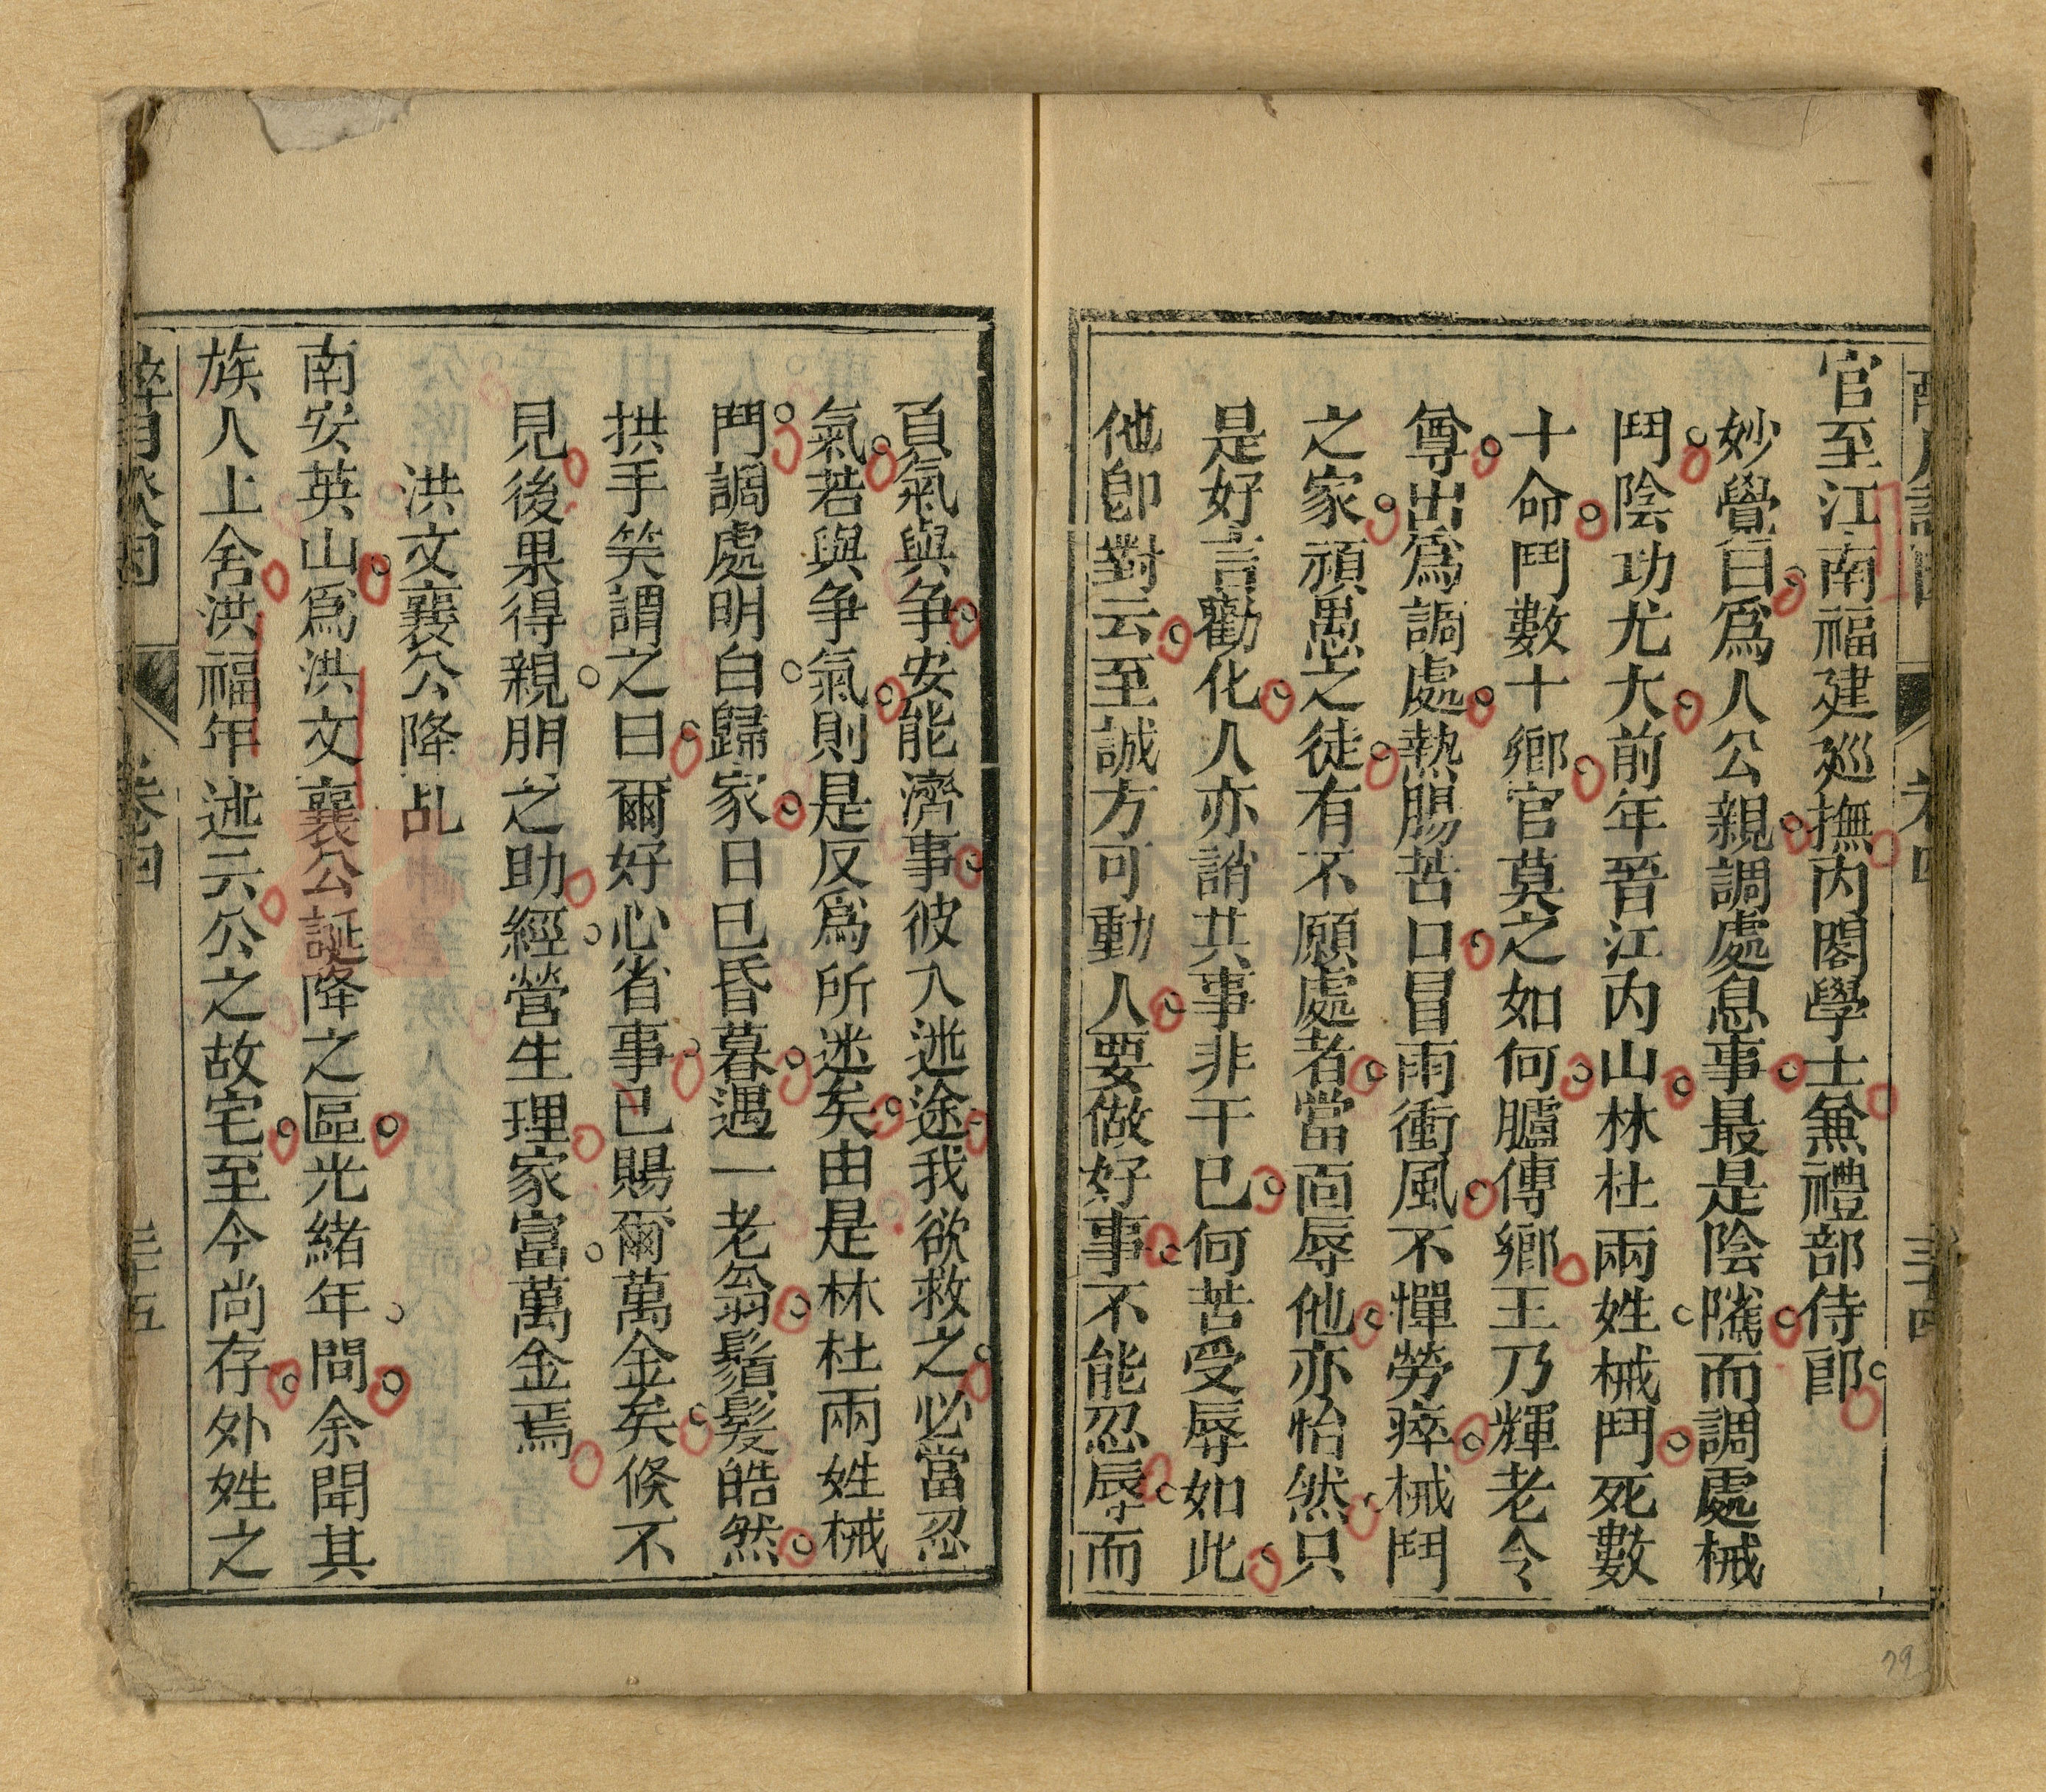 官至江南福建廵撫内閣學士兼禮部侍郎
妙覺曰爲人公親調處息事最是陰隲而調處械
鬥陰功尤大前年晉江内山林杜兩姓械鬥死數
十命鬥數十鄉官莫之如何臚傳鄉王乃輝老令
尊出爲調處熱腸苦口冒雨衝風不憚勞瘁械鬥
之家頑愚之徒有不願處者當面辱他亦怡然只
是好言勸化人亦誚共事非干已何苦受辱如此
他卽對云至誠方可動人要做好事不能忍辱而
負氣與争安能濟事彼入迷途我欲救之必當忍
氣若與争氣則是反爲所迷矣由是林杜兩姓械
鬥調處明白歸家日已昏暮遇一老翁鬚髮皓然
拱手笑謂之曰爾好心省事已賜爾萬金矣倏不
見後果得親朋之助經營生理家富萬金焉
洪文襄公降乩
南安英山爲洪文襄公誕降之區光緒年間余聞其
族人上舍洪福年述云公之故宅至今尚存外姓之
卷四
三十五
79